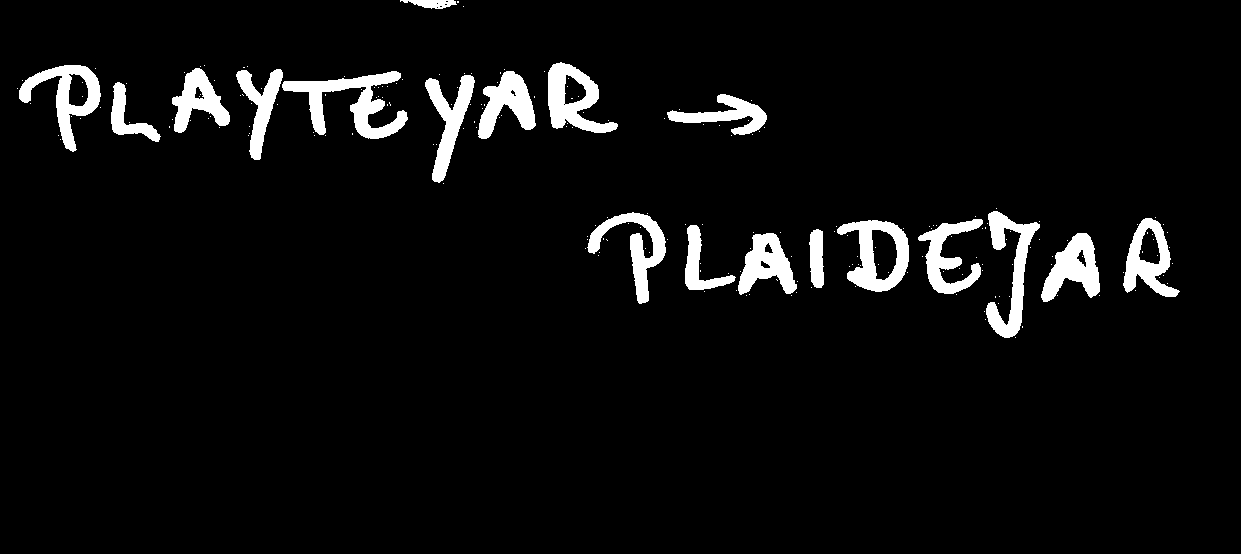 PLAYTEYAR →
PLAIDEJAR